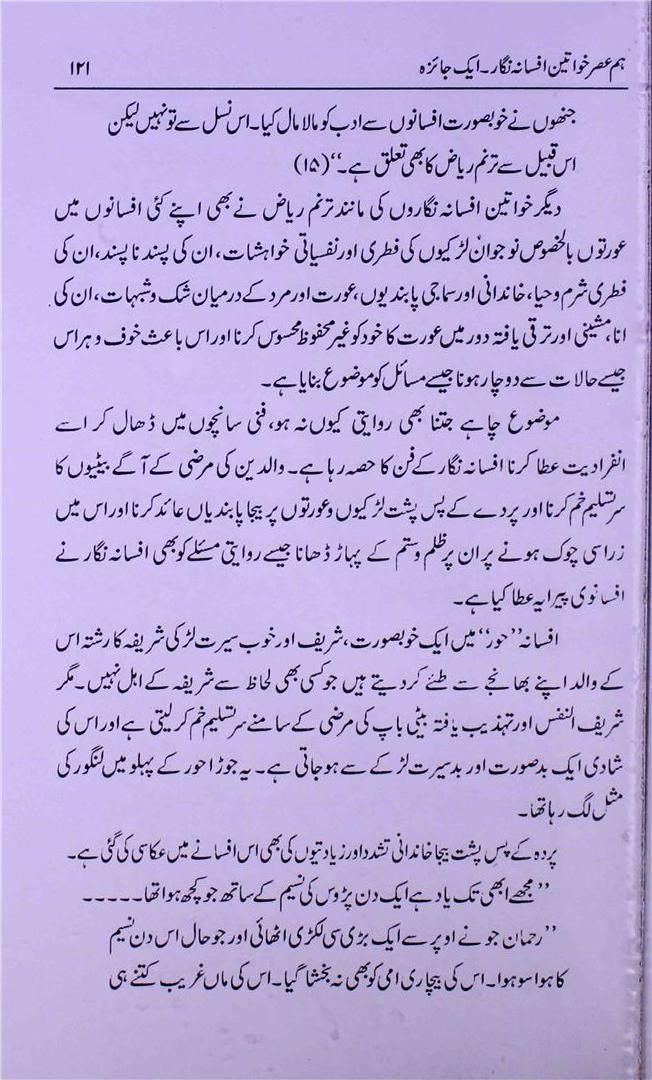 ہم عصر خواتین افسانہ نگار۔ ایک جائزہ ۱۲۱
جنھوں نے خوبصورت افسانوں سے ادب کو مالا مال کیا۔ اس نسل سے تو نہیں لیکن
اس قبیل سے ترنم ریاض کا بھی تعلق ہے۔‘‘ (۱۵)
دیگر خواتین افسانہ نگاروں کی مانند ترنم ریاض نے بھی اپنے کئی افسانوں میں
عورتوں بالخصوص نوجوان لڑکیوں کی فطری اور نفسیاتی خواہشات، ان کی پسند نا پسند، ان کی
فطری شرم و حیا، خاندانی اور سماجی پابندیوں، عورت اور مرد کے درمیان شک و شبہات، ان کی
انا، مشینی اور ترقی یافتہ دور میں عورت کا خود کو غیر محفوظ محسوس کرنا اور اس باعث خوف و ہراس
جیسے حالات سے دوچار ہونا جیسے مسائل کو موضوع بنایا ہے۔
موضوع چاہے جتنا بھی روایتی کیوں نہ ہو، فنی سانچوں میں ڈھال کر اسے
انفرادیت عطا کرنا افسانہ نگار کے فن کا حصہ رہا ہے۔ والدین کی مرضی کے آگے بیٹیوں کا
سر تسلیم خم کرنا اور پردے کے پس پشت لڑکیوں و عورتوں پر بیجا پابندیاں عائد کرنا اور اس میں
زرا سی چوک ہونے پر ان پر ظلم و ستم کے پہاڑ ڈھانا جیسے روایتی مسئلے کو بھی افسانہ نگار نے
افسانوی پیرایہ عطا کیا ہے۔
افسانہ ’’حور‘‘ میں ایک خوبصورت، شریف اور خوب سیرت لڑکی شریفہ کا رشتہ اس
کے والد اپنے بھانجے سے طئے کر دیتے ہیں جو کسی بھی لحاظ سے شریفہ کے اہل نہیں۔ مگر
شریف النفس اور تہذیب یافتہ بیٹی باپ کی مرضی کے سامنے سر تسلیم خم کر لیتی ہے اور اس کی
شادی ایک بدصورت اور بد سیرت لڑکے سے ہو جاتی ہے۔ یہ جوڑا حور کے پہلو میں لنگور کی
مثل لگ رہا تھا۔
پردہ کے پسِ پشت بیجا خاندانی تشدد اور زیادتیوں کی بھی اس افسانے میں عکاسی کی گئی ہے۔
’’مجھے ابھی تک یاد ہے ایک دن پڑوس کی نسیم کے ساتھ جو کچھ ہوا تھا۔۔۔۔۔
’’رحمان جو نے اوپر سے ایک بڑی سی لکڑی اٹھائی اور جو حال اس دن نسیم
کا ہوا سو ہوا۔ اس کی بیچاری امی کو بھی نہ بخشا گیا۔ اس کی ماں غریب کتنے ہی